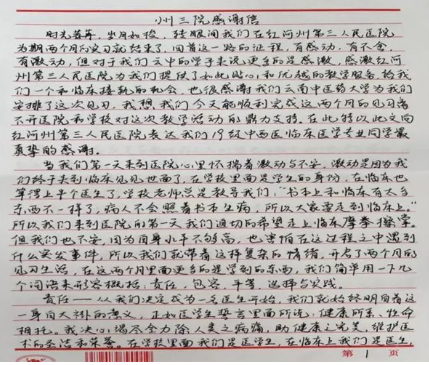 州三院感谢信
时光荏苒，岁月如梭，转眼间我们在红河州第三人民医院
为期两个月的实习就结束了，回首这一路的征程，有感动，有不舍，
有激动，但对于我们云中的学子来说更多的是感激，感激红河
州第三人民医院为我们提供了如此贴心和优越的教学服务，给我
们一个和临床接轨的机会，也很感谢我们云南中医药大学为我们
安排了这次见习，我想我们今天能收到完成这两个月的见习离
不开医院和学校对这次教学活动的鼎力支持。在此特以此文向
红河州第三人民医院表达我们19级中西医临床医学专业同学最
真挚的感谢。
当我们第一天来到医院心里怀揣着激动与不安，激动是因为我
们终于来到临床见见世面了，在学校里面是学生的身份，在临床也
算得上半个医生了，学校老师总是教导我们，“书本上和临床有太多
东西不一样了，病人不会照着书本生病，所以大家要走到临床上。”
所以我们来到医院的第一天我们迫切的希望走上临床摩拳擦掌。
但我们也不安，因为自身水平不够高，也害怕在这过程之中遇到
什么突发事件，所以我们就带着这样复杂的情绪，开启了两个月的
见习生活，在这两个月里面更多的是学到的东西，我们简单用一下几
个词语来形容概括：责任，包容，平等，选择与实践。
责任——从我们决定成为一名医生开始，我们就始终明白着这
一身白大褂的意义，正如医学生誓言里面所说：健康所系，性命
相托。我决心竭尽全力除人类之病痛，助健康之完美，维护医
术的圣洁和荣誉。在学校里面我们是医学生，在临床上我们是医生，
第 1 页